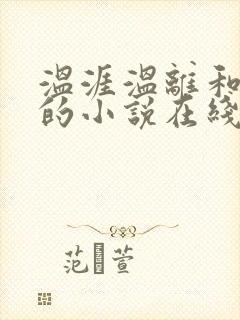 温涯温離和
的小说在綫
范 萱